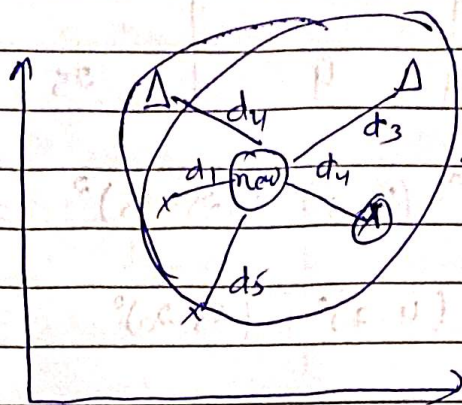 Δ Δ
d4
d3
d1 new d4
x
d5
x